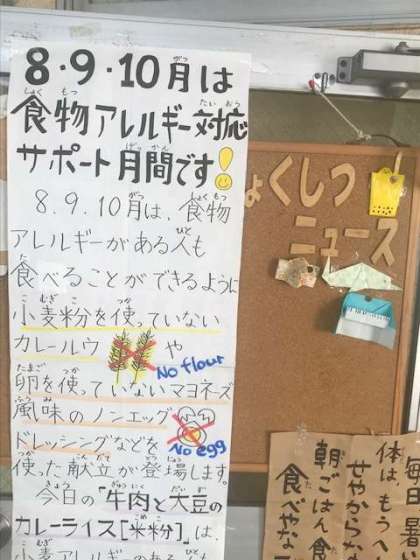 8・9・10月は
食物アレルギー対応
サポート月間です！
8.9.10月は、食物
アレルギーがある人も
食べることができるように
小麦粉を使っていない
カレールウや
No flour
卵を使っていないマヨネーズ
風味のノンエッグ
ドレッシングなどを
No egg
使った献立が登場します。
今日の「牛肉と大豆の
カレーライス[米粉]」は、
小麦アレルギーのある人も
ょくしつ
ニュース
毎日暑
体は、もうへ
せやからな
朝ごはん食
食べやな